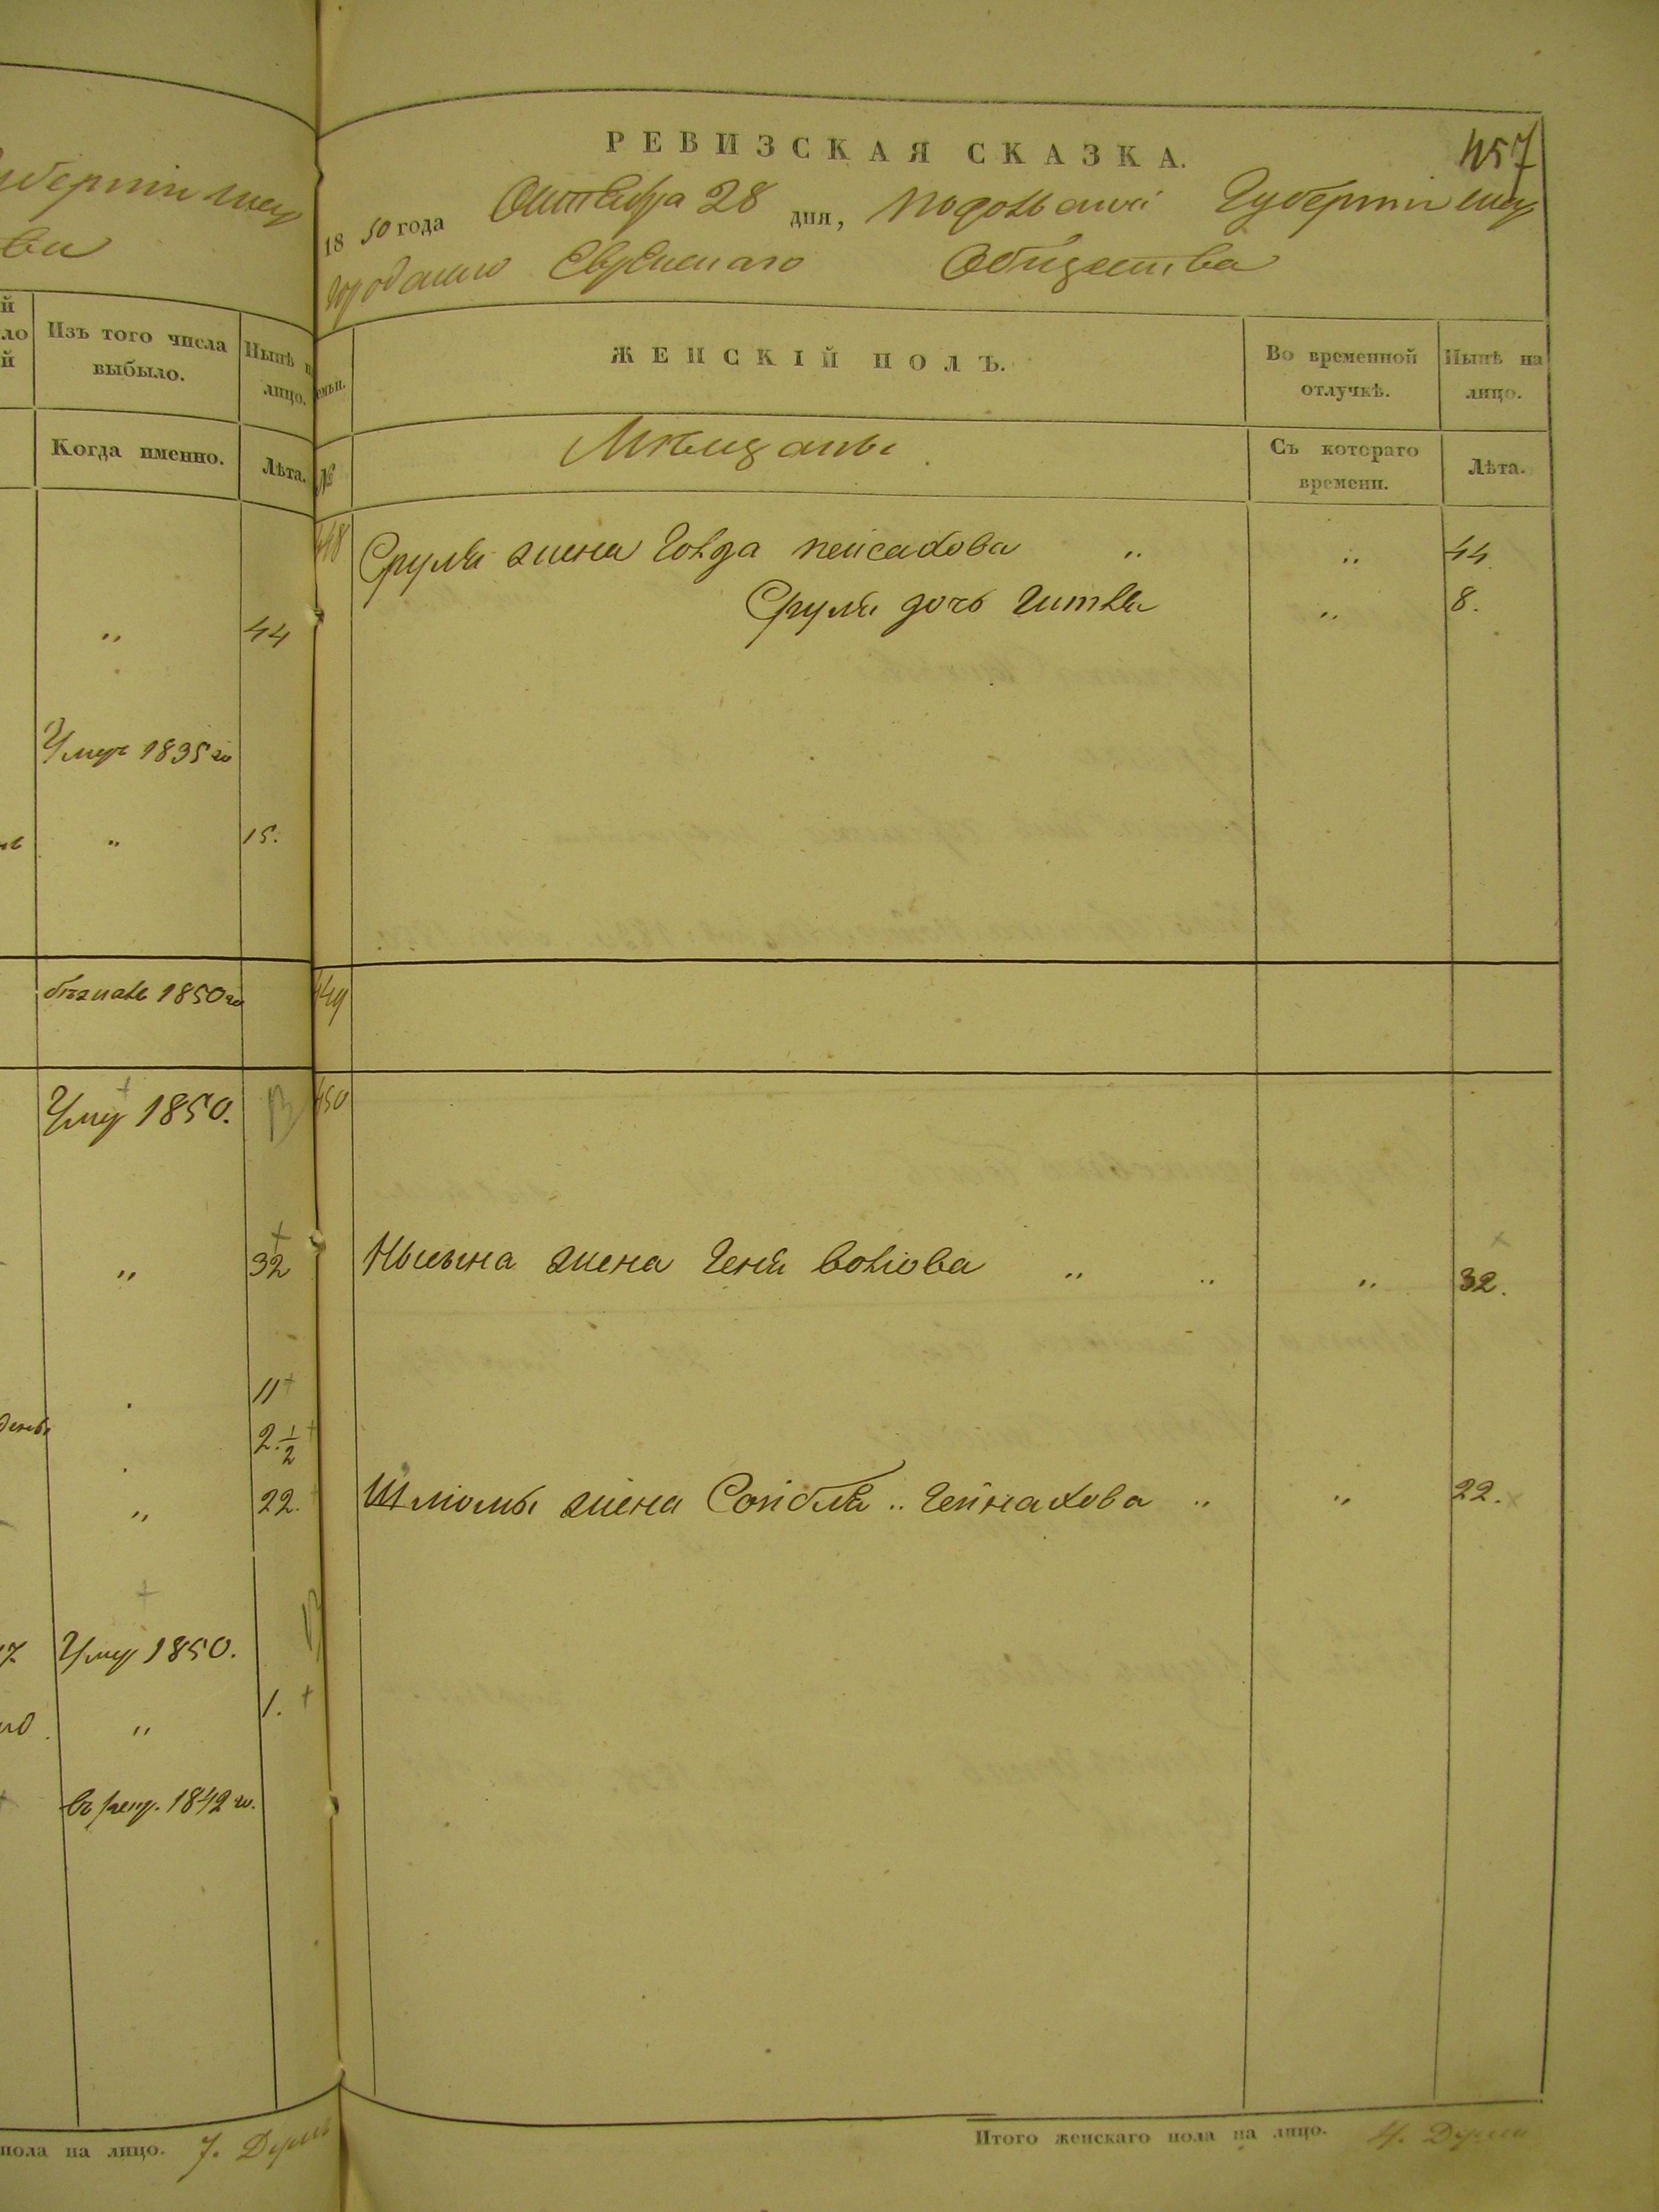 Губерніи шар
ва
й
ло
й
Изъ того числа выбыло.
Нынѣ н
лицо.
Когда именно.
Лѣта.
" 44
Умеръ 1835 го
" 15.
бѣжалъ 1850 го
Умер 1850.
" 32
11
2. 1/2
" 22.
Умер 1850.
" 1.
въ рекр. 1842 го.
пола на лицо. 7. Душъ
457
РЕВИЗСКАЯ СКАЗКА.
1850 года Октября 28 дня, Подольской Губерніи шар
городскаго Еврейскаго Общества
ЖЕНСКІЙ ПОЛЪ.
Во временной отлучкѣ.
Нынѣ на лицо.
№
Мѣщаны
Съ котораго времени.
Лѣта.
448 Сруля жена Голда Пейсахова " " 44
Сруля дочь Гитля " 8.
449
450
жена Геня Волкова " " " 32.
Шлиомы жена Сойбля " Гейнахова " " 22.
Итого женскаго пола на лицо. 4. Души